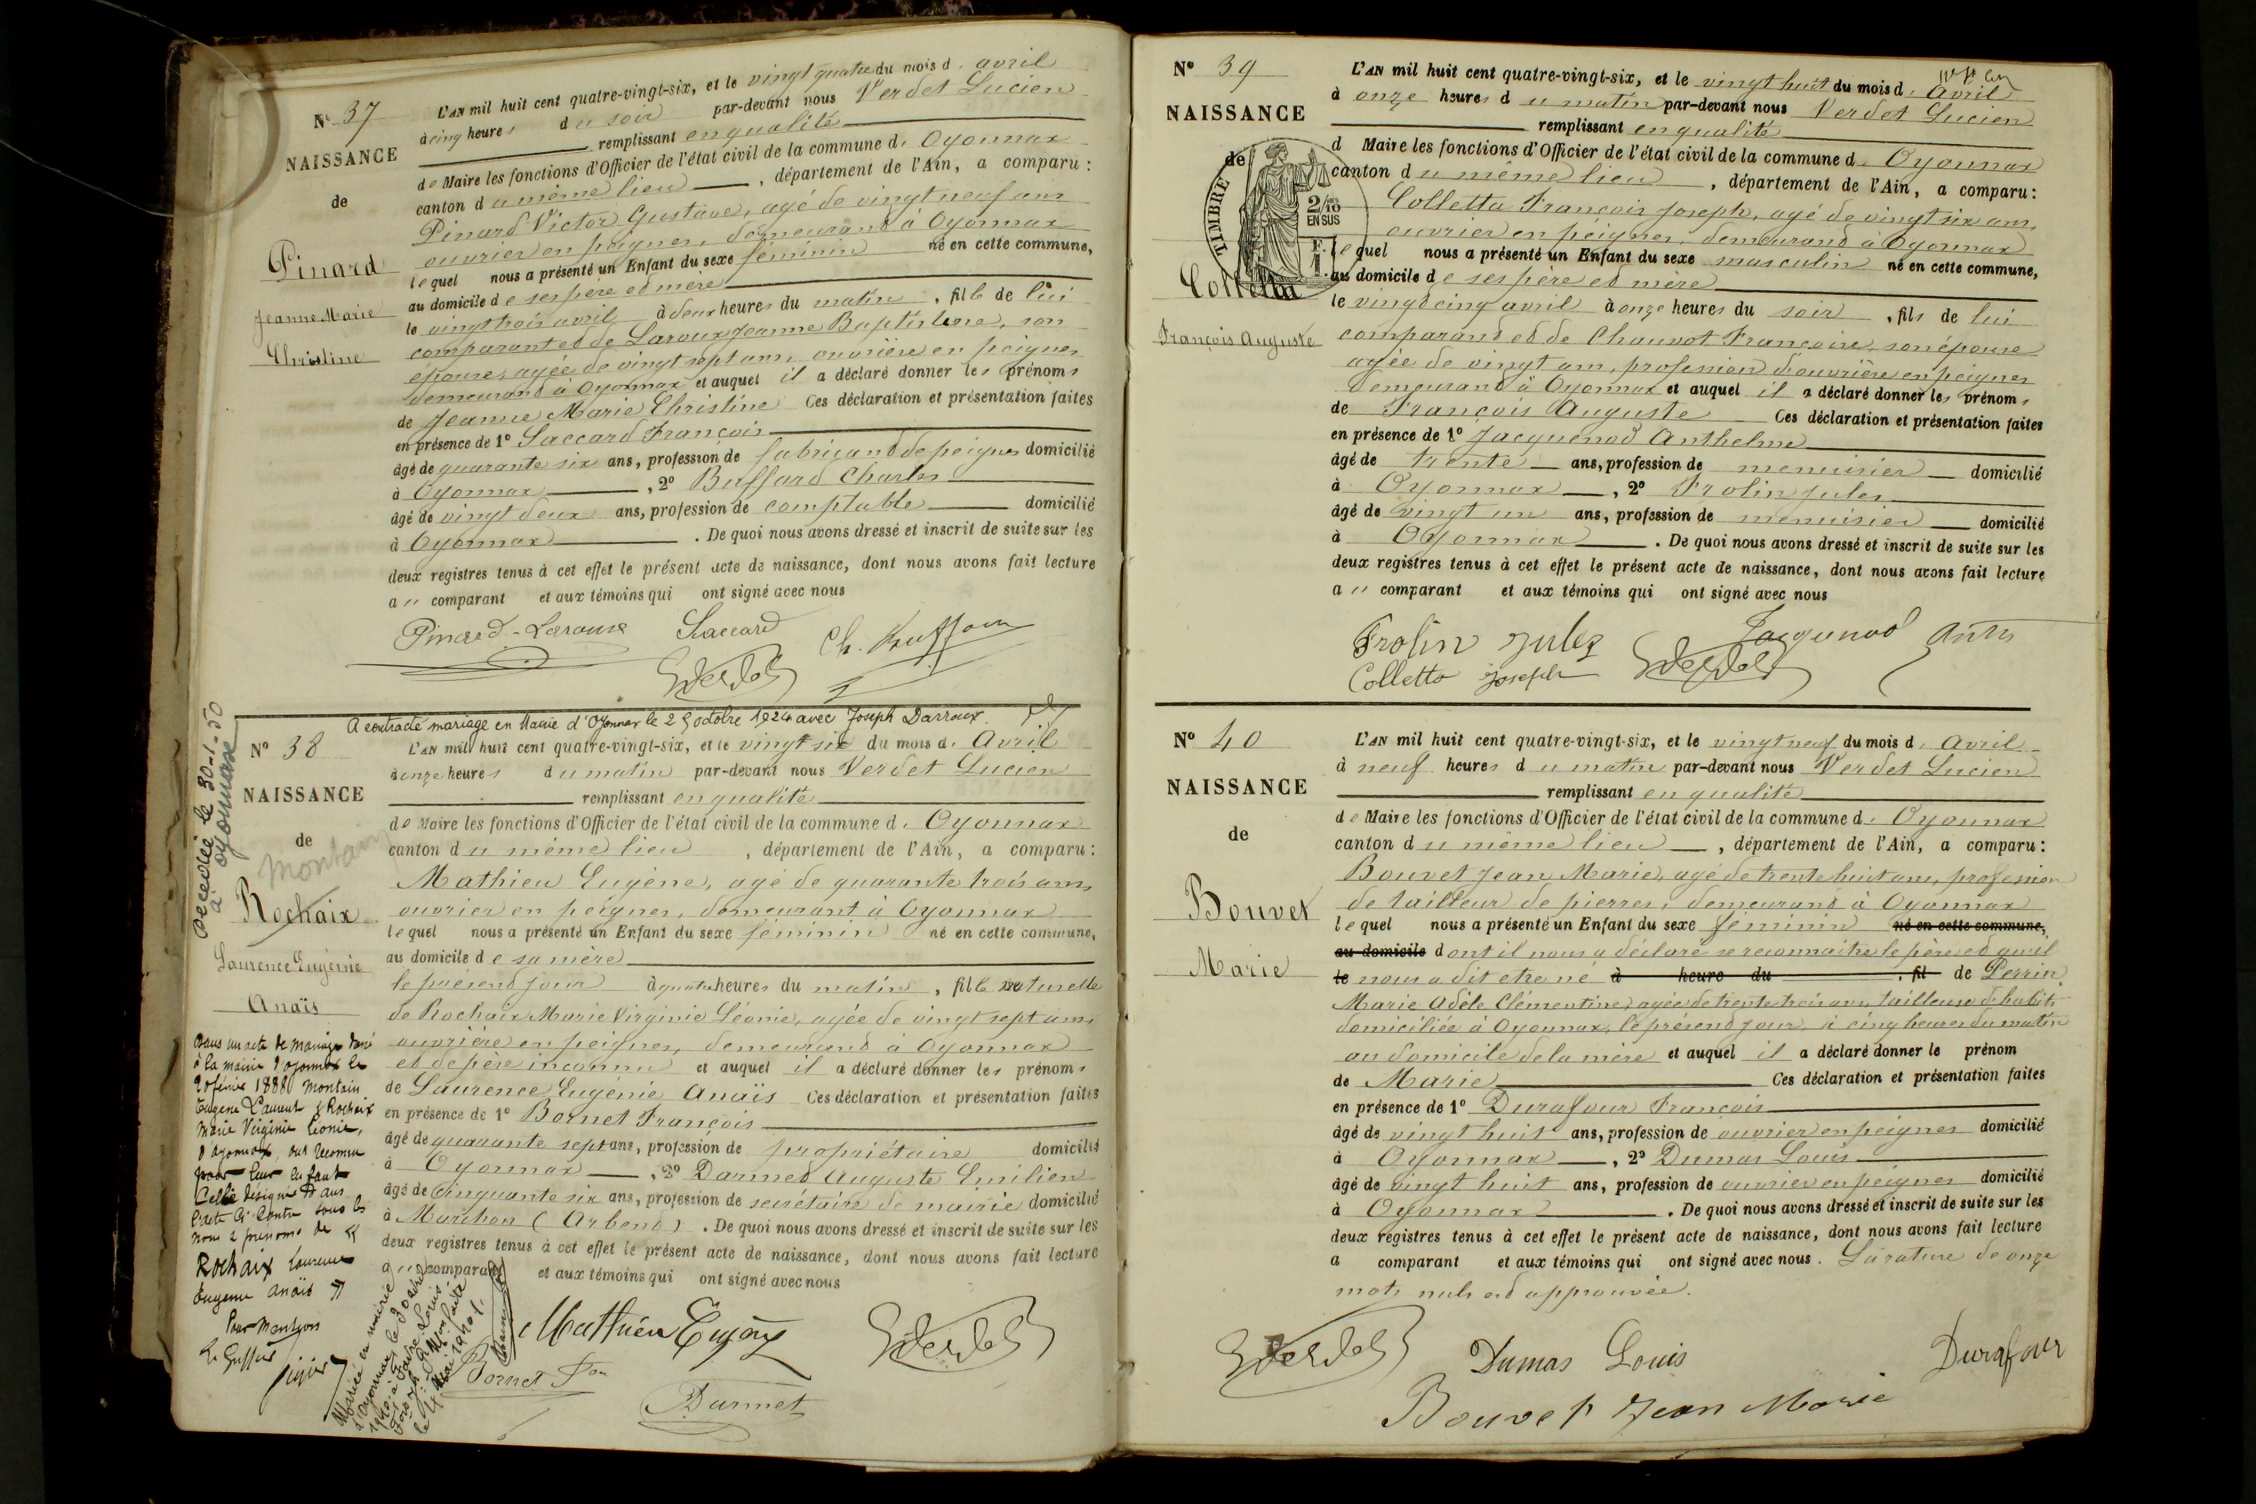 N° 37
NAISSANCE
de
Pinard
Jeanne Marie
Christine
L'AN mil huit cent quatre-vingt-six, et le vingt quatre du mois d' avril
à cinq heures du soir par-devant nous Verdet Lucien
remplissant en qualité
de Maire les fonctions d'Officier de l'état civil de la commune d' Oyonnax
canton du même lieu, département de l'Ain, a comparu :
Pinard Victor Gustave, agé de vingt neuf ans
ouvrier en peignes, demeurant à Oyonnax
lequel nous a présenté un Enfant du sexe féminin né en cette commune,
au domicile de ses père et mère
le vingt trois avril à deux heures du matin, fille de lui
comparant et de Laroux Jeanne Baptistine, son
épouse, agée de vingt sept ans, ouvrière en peignes
demeurant à Oyonnax et auquel il a déclaré donner les prénoms
de Jeanne Marie Christine Ces déclaration et présentation faites
en présence de 1° Saccard François
âgé de quarante six ans, profession de fabricant de peignes domicilié
à Oyonnax, 2° Buffard Charles
âgé de vingt deux ans, profession de comptable domicilié
à Oyonnax. De quoi nous avons dressé et inscrit de suite sur les
deux registres tenus à cet effet le présent acte de naissance, dont nous avons fait lecture
a u comparant et aux témoins qui ont signé avec nous
Pinard-Laroux Saccard Ch. Buffard
Verdet
A contracté mariage en Mairie d'Oyonnax le 25 octobre 1924 avec Joseph Darroux.
Décédée le 30-1-50
à Oyonnax
N° 38
NAISSANCE
de
Montain
Rochaix
Laurence Eugénie
Anaïs
Dans un acte de mariage dressé
à la mairie d'Oyonnax le
Montain
Eugène Laurent & Rochaix
Marie Virginie Léonie,
d'Oyonnax, ont reconnu
pour leur enfant
Celle désignée dans
l'acte ci-contre sous les
nom & prénoms de "
Rochaix Laurence
Eugénie Anaïs "
Pour Mention
Le Greffier
Mariée en mairie
d'Oyonnax le
le 4 Mai 1920.
L'AN mil huit cent quatre-vingt-six, et le vingt six du mois d' Avril
à onze heures du matin par-devant nous Verdet Lucien
remplissant en qualité
de Maire les fonctions d'Officier de l'état civil de la commune d' Oyonnax
canton du même lieu, département de l'Ain, a comparu :
Mathieu Eugène, agé de quarante trois ans,
ouvrier en peignes, demeurant à Oyonnax
lequel nous a présenté un Enfant du sexe féminin né en cette commune,
au domicile de sa mère
le présent jour à quatre heures du matin, fille naturelle
de Rochaix Marie Virginie Léonie, agée de vingt sept ans
ouvrière en peignes, demeurant à Oyonnax
et de père inconnu et auquel il a déclaré donner les prénoms
de Laurence Eugénie Anaïs Ces déclaration et présentation faites
en présence de 1° Bornet François
âgé de quarante sept ans, profession de propriétaire domicilié
à Oyonnax, 2° Darmet Auguste Emilien
âgé de cinquante six ans, profession de secrétaire de mairie domicilié
à Marchon (Arbent). De quoi nous avons dressé et inscrit de suite sur les
deux registres tenus à cet effet le présent acte de naissance, dont nous avons fait lecture
a u comparant et aux témoins qui ont signé avec nous
Mathieu Eugène Verdet
Bornet Fois
Darmet
N° 39
NAISSANCE
de
TIMBRE
2/10
EN SUS
Colletta
François Auguste
L'AN mil huit cent quatre-vingt-six, et le vingt huit du mois d' Avril
à onze heures du matin par-devant nous Verdet Lucien
remplissant en qualité
d Maire les fonctions d'Officier de l'état civil de la commune d' Oyonnax
canton du même lieu, département de l'Ain, a comparu :
Colletta François Joseph, agé de vingt six ans,
ouvrier en peignes, demeurant à Oyonnax
lequel nous a présenté un Enfant du sexe masculin né en cette commune,
au domicile de ses père et mère
le vingt cinq avril à onze heures du soir, fils de lui
comparant et de Chauvot Françoise, son épouse
agée de vingt ans, profession d'ouvrière en peignes
demeurant à Oyonnax et auquel il a déclaré donner les prénoms
de François Auguste Ces déclaration et présentation faites
en présence de 1° Jacquenod Anthelme
âgé de trente ans, profession de menuisier domicilié
à Oyonnax, 2° Frolin Jules
âgé de vingt un ans, profession de menuisier domicilié
à Oyonnax. De quoi nous avons dressé et inscrit de suite sur les
deux registres tenus à cet effet le présent acte de naissance, dont nous avons fait lecture
a u comparant et aux témoins qui ont signé avec nous
Frolin Jules Jacquenod Anth
Colletto Joseph Verdet
N° 40
NAISSANCE
de
Bouvet
Marie
L'AN mil huit cent quatre-vingt-six, et le vingt neuf du mois d' Avril
à neuf heures du matin par-devant nous Verdet Lucien
remplissant en qualité
de Maire les fonctions d'Officier de l'état civil de la commune d' Oyonnax
canton du même lieu, département de l'Ain, a comparu :
Bouvet Jean Marie, agé de trente huit ans, profession
de tailleur de pierres, demeurant à Oyonnax
lequel nous a présenté un Enfant du sexe féminin né en cette commune,
au domicile dont il nous a déclaré se reconnaître le père et qu'il
le nous a dit être né à heure du , fil de Perrin
Marie Adèle Clémentine, agée de trente trois ans, tailleuse d'habits
domiciliée à Oyonnax, le présent jour à cinq heures du matin
au domicile de la mère et auquel il a déclaré donner le prénom
de Marie Ces déclaration et présentation faites
en présence de 1° Durafour François
âgé de vingt huit ans, profession de ouvrier en peignes domicilié
à Oyonnax, 2° Dumas Louis
âgé de vingt huit ans, profession de ouvrier en peignes domicilié
à Oyonnax. De quoi nous avons dressé et inscrit de suite sur les
deux registres tenus à cet effet le présent acte de naissance, dont nous avons fait lecture
a comparant et aux témoins qui ont signé avec nous. La rature de onze
mots nuls est approuvée.
Verdet Dumas Louis Durafour
Bouvet Jean Marie